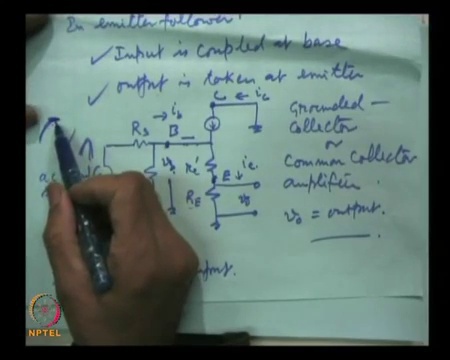 In emitter follower:
✓ Input is coupled at base
✓ output is taken at emitter
C ← ic
→ ib
Rs
B
re'
E
ie
RE
vo
ac
Grounded-
Collector
or
Common Collector
amplifier.
vo = output.
NPTEL